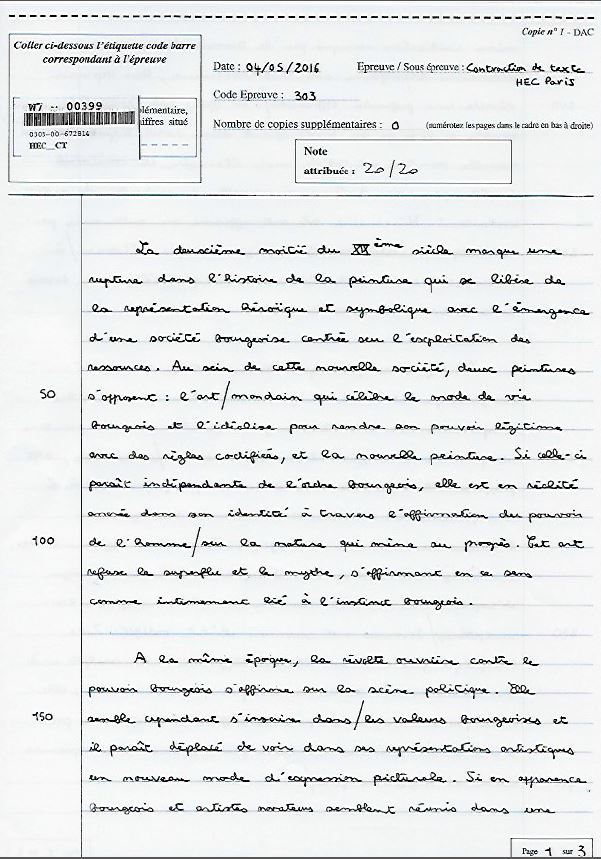 Copie n° 1 - DAC
Coller ci-dessous l'étiquette code barre
correspondant à l'épreuve
W7 -- 00399
lémentaire,
iffres situé
0303-00-672814
HEC_CT
Date : 04/05/2016
Epreuve / Sous épreuve : Contraction de texte
HEC Paris
Code Epreuve : 303
Nombre de copies supplémentaires : 0 (numérotez les pages dans le cadre en bas à droite)
Note
attribuée : 20/20
La deuxième moitié du XIXème siècle marque une
rupture dans l'histoire de la peinture qui se libère de
la représentation héroïque et symbolique avec l'émergence
d'une société bourgeoise centrée sur l'exploitation des
ressources. Au sein de cette nouvelle société, deux peintures
50 s'opposent : l'art/mondain qui célèbre le mode de vie
bourgeois et l'idéalise pour rendre son pouvoir légitime
avec des règles codifiées, et la nouvelle peinture. Si celle-ci
paraît indépendante de l'ordre bourgeois, elle est en réalité
ancrée dans son identité à travers l'affirmation du pouvoir
100 de l'homme/sur la nature qui mène au progrès. Cet art
refuse le superflu et le mythe, s'affirmant en ce sens
comme intimement lié à l'instinct bourgeois.
A la même époque, la révolte ouvrière contre le
pouvoir bourgeois s'affirme sur la scène politique. Elle
150 semble cependant s'inscrire dans/les valeurs bourgeoises et
il paraît déplacé de voir dans ses représentations artistiques
un nouveau mode d'expression picturale. Si en apparence
bourgeois et artistes novateurs semblent réunis dans une
Page 1 sur 3